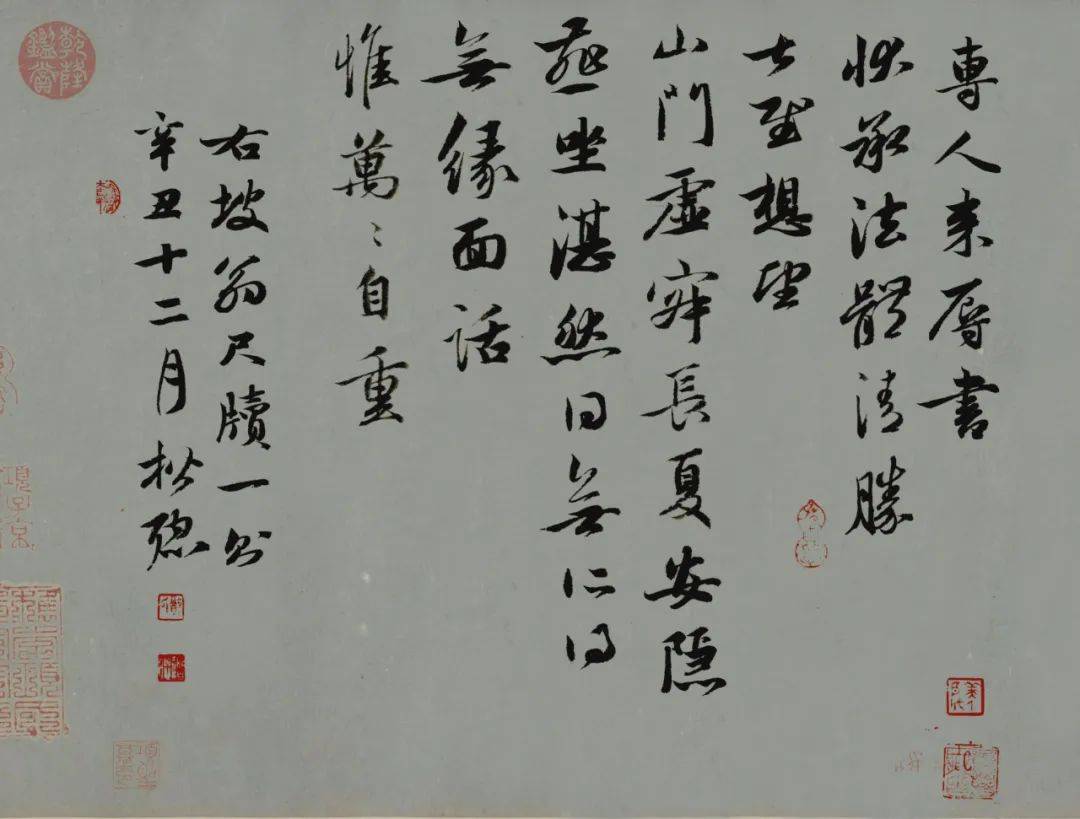 專人來辱書
伏承法體清勝
想望
山門虛寂長夏安隱
燕坐湛然無所得
無緣面話
惟萬〻自重
右坡翁尺牘一則
辛丑十二月松
乾隆鑑賞